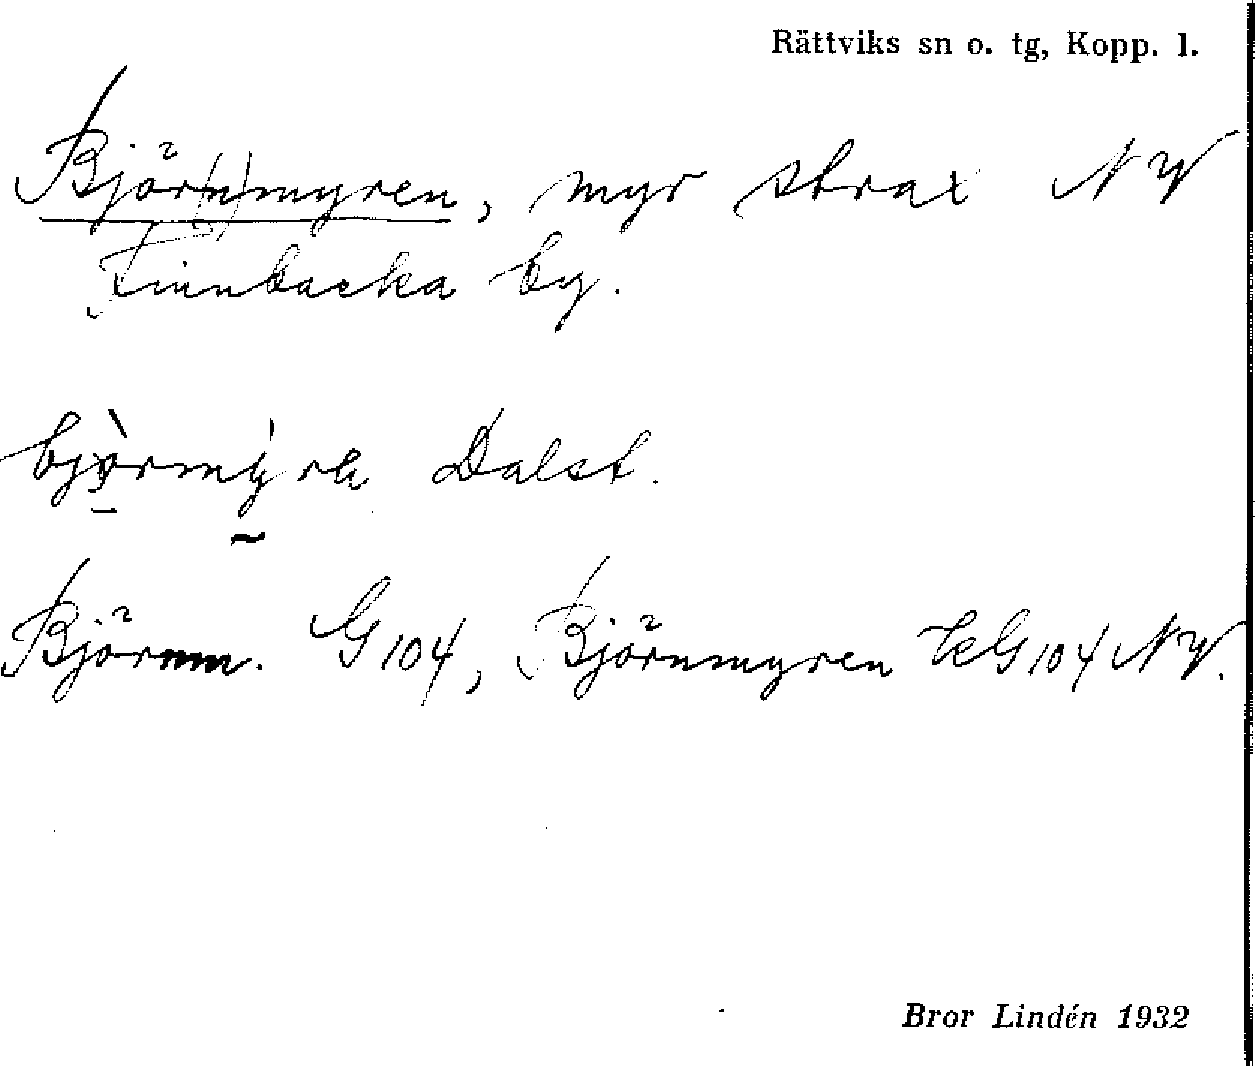 Rättviks sn o. tg, Kopp. l.
Björ(n)myren, myr strax NV
Finnbacka by.
Dalst.
Björnm. G 104, Björnmyren G 104 NV.
Bror Lindén 1932